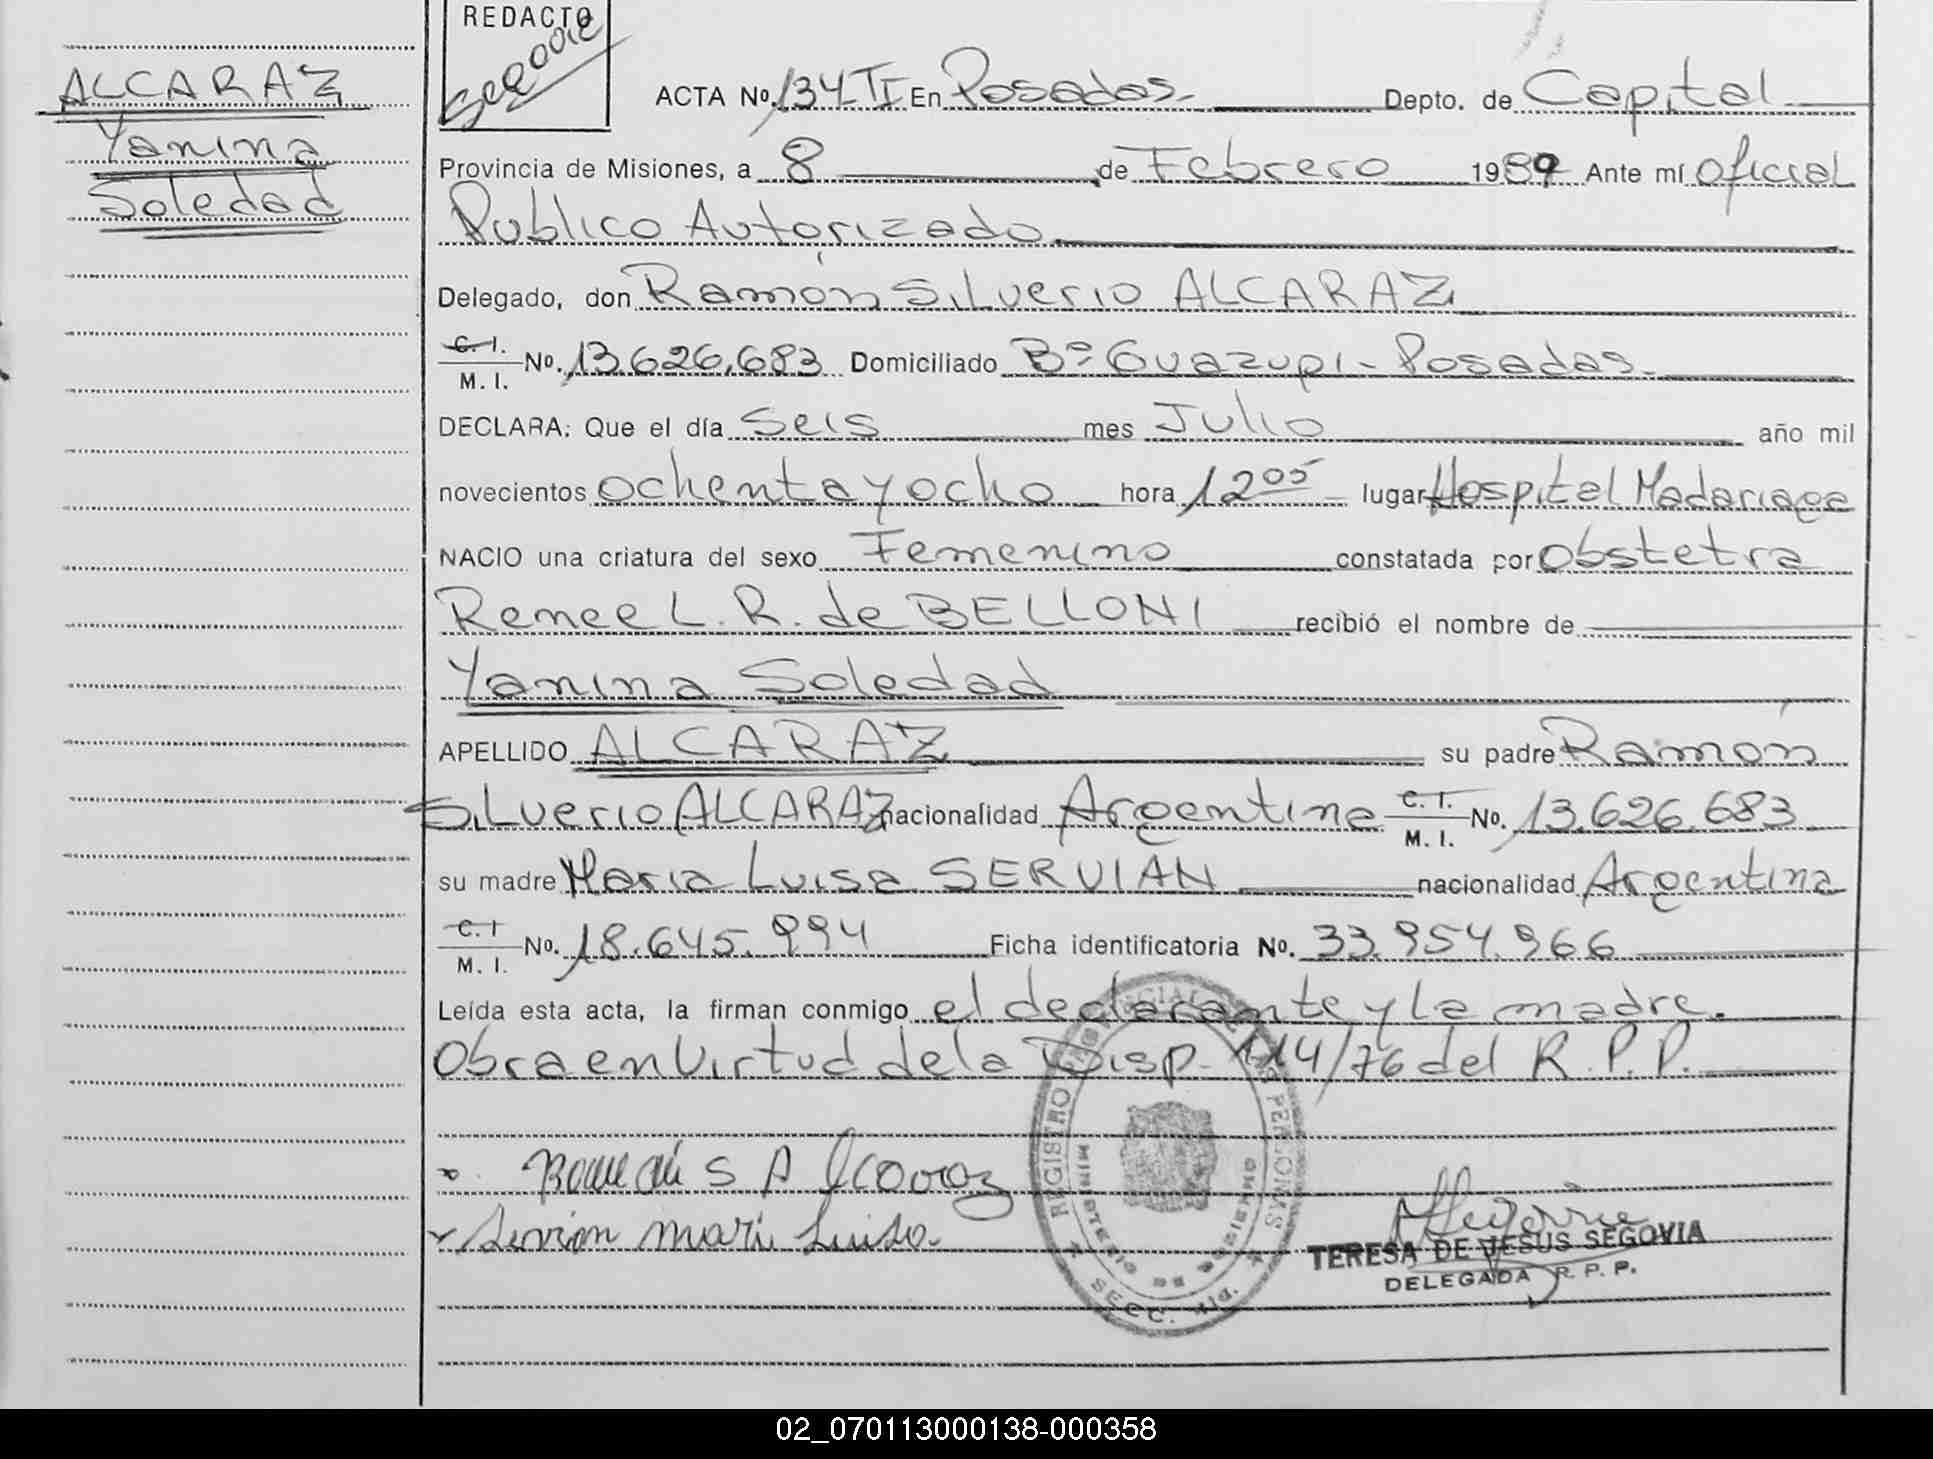 ALCARAZ
Yanina
Soledad
REDACTO
Segovia
ACTA No. 134 TI En Posadas Depto. de Capital
Provincia de Misiones, a 8 de Febrero 1989 Ante mí Oficial
Publico Autorizado
Delegado, don Ramón Silverio ALCARAZ
C. I.
M. I. No. 13.626.683 Domiciliado Bº Guazupi - Posadas
DECLARA: Que el día Seis mes Julio año mil
novecientos ochenta y ocho hora 12 05 lugar Hospital Madariaga
NACIO una criatura del sexo Femenino constatada por Obstetra
Renee L. R. de BELLONI recibió el nombre de
Yanina Soledad
APELLIDO ALCARAZ su padre Ramón
Silverio ALCARAZ nacionalidad Argentina C. I. M. I. No. 13.626.683
su madre Maria Luisa SERVIAN nacionalidad Argentina
C. I
M. I. No. 18.645.994 Ficha identificatoria No. 33.954.966
Leída esta acta, la firman conmigo el declarante y la madre.
Obra en virtud de la Disp. 114/76 del R. P. P.
Ramón S Alcaraz
Servian Mari Luisa
REGISTRO PROVINCIAL DE LAS PERSONAS
MINISTERIO DE GOBIERNO
SECC. 4ta.
TERESA DE JESUS SEGOVIA
DELEGADA R. P. P.
02_070113000138-000358